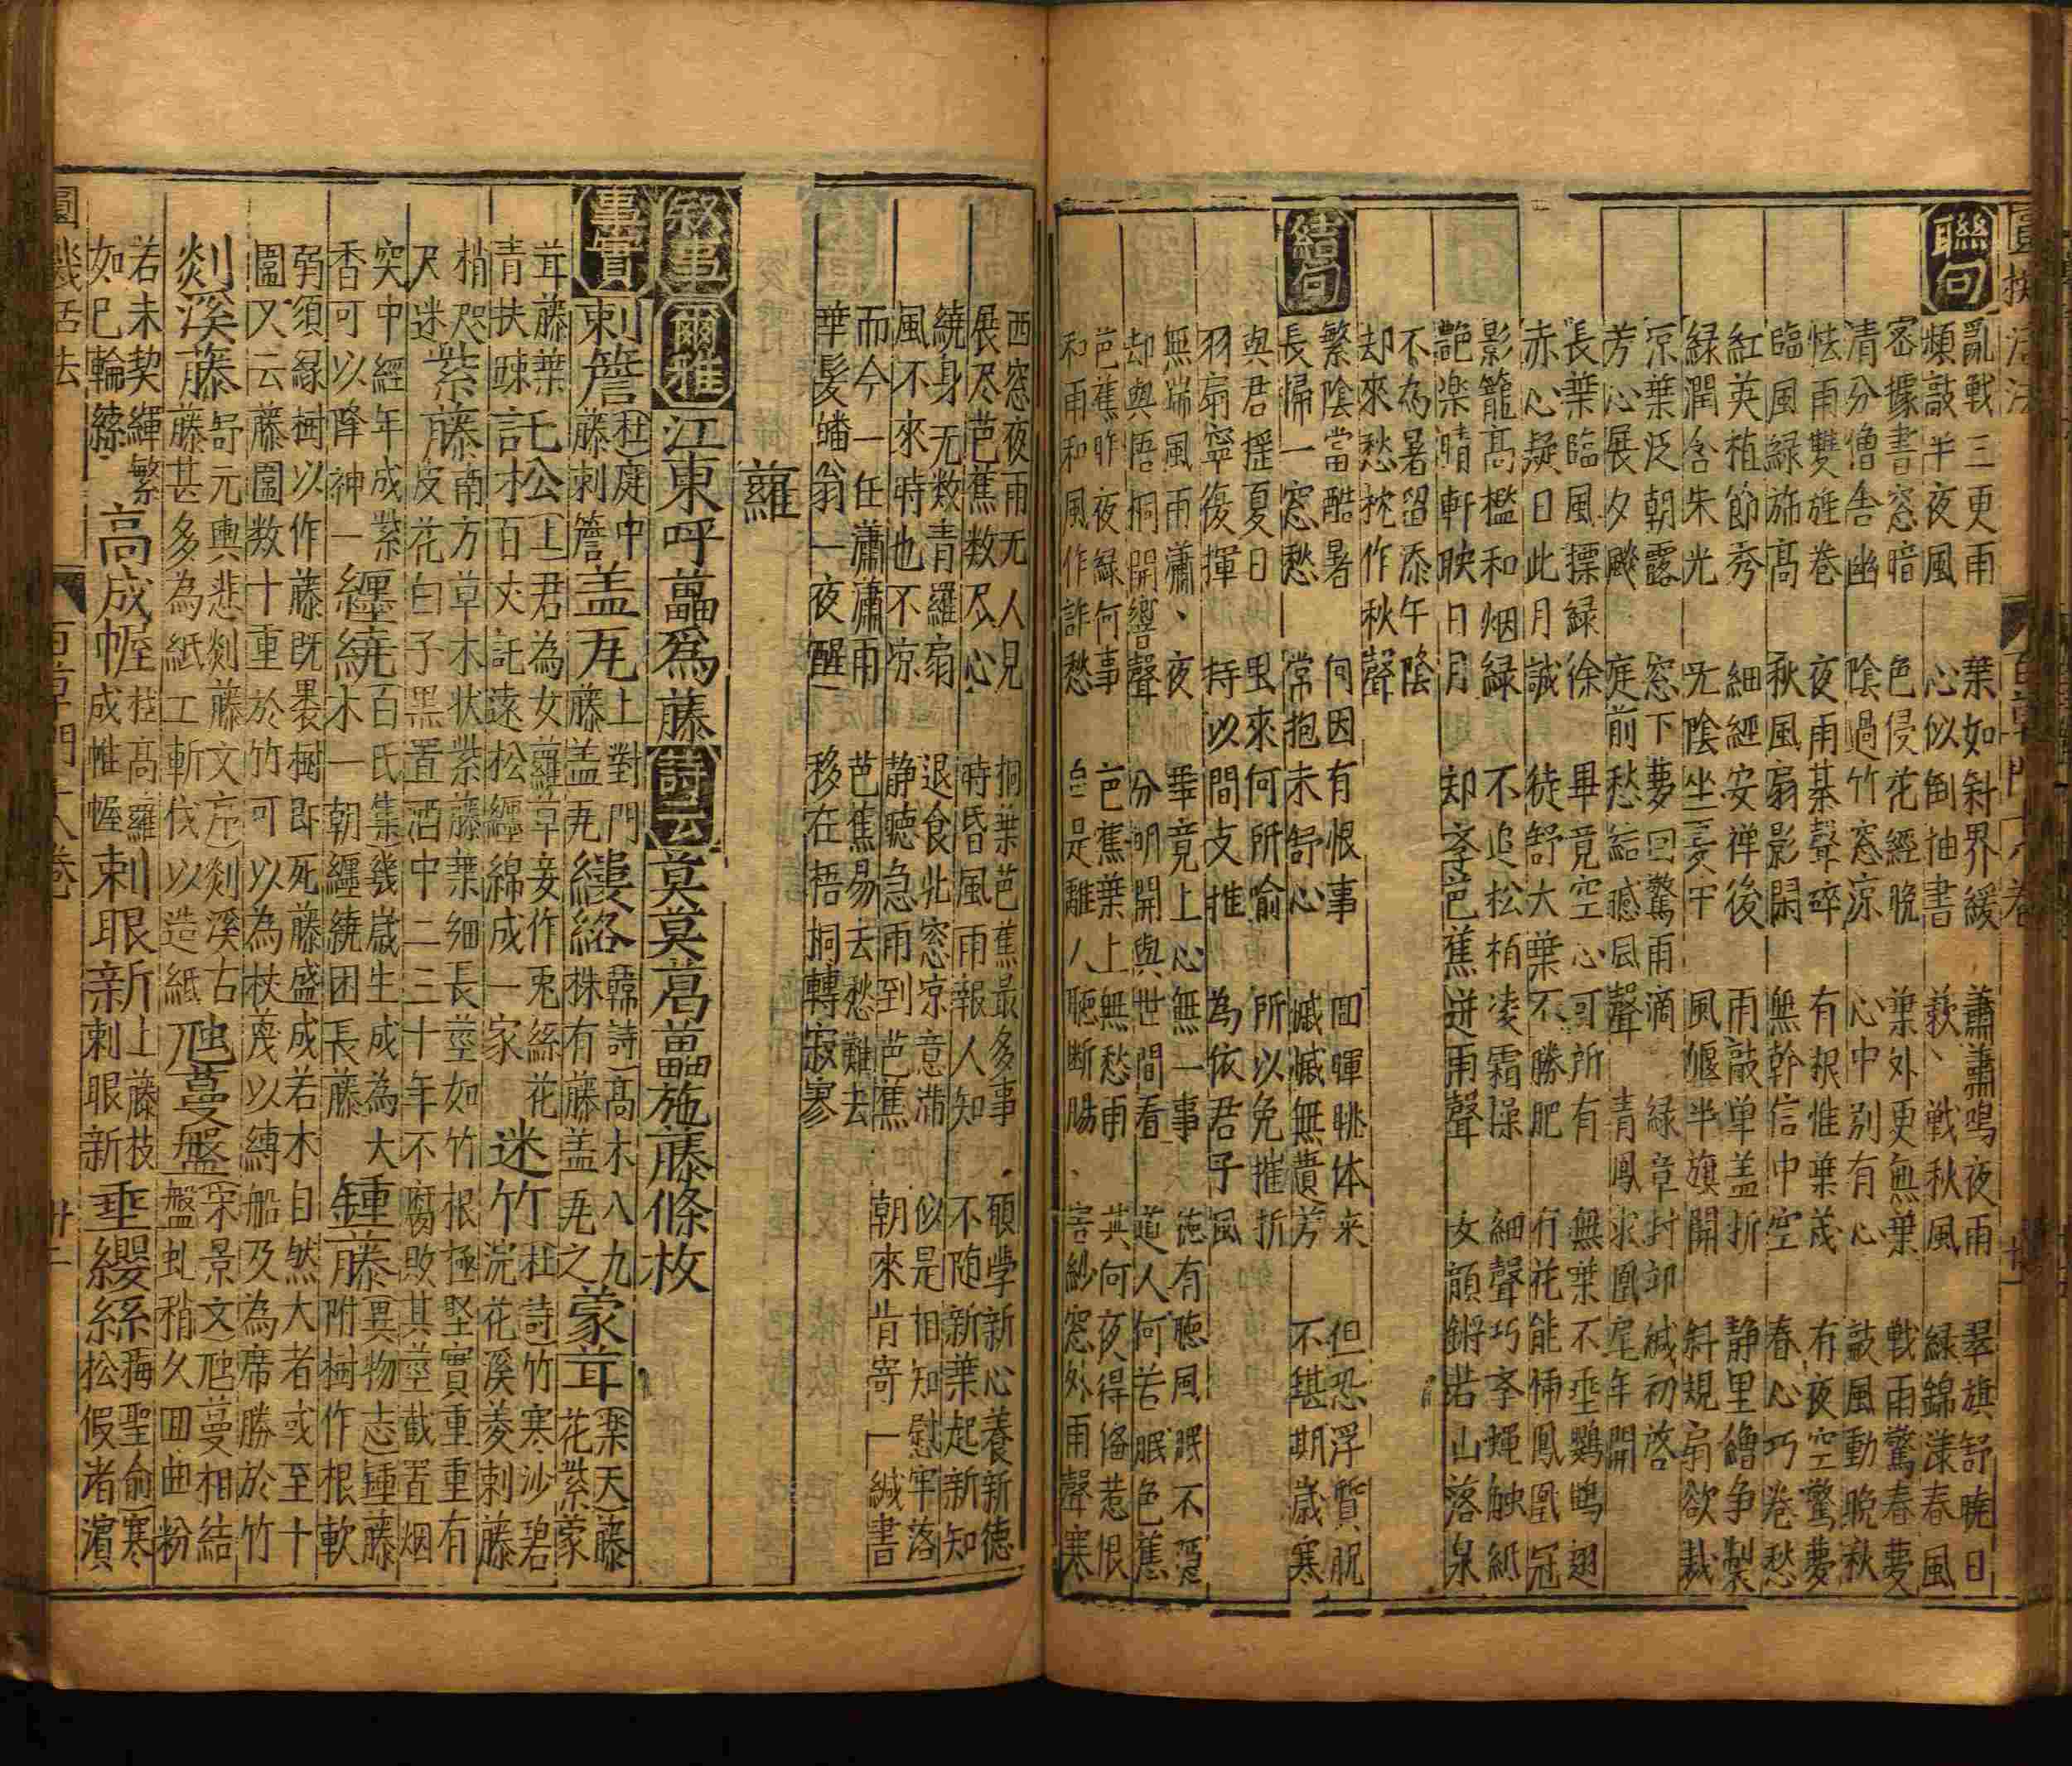 聯句
亂戰三更雨 葉如斜界緩 蕭蕭鳴夜雨 翠旗舒曉日
頻敲半夜風 心似倒抽書 戰秋風 綠錦漾春風
密據書窓暗 色侵花經晚 葉外更無葉 戰雨驚春夢
清分僧舍幽 陰過竹窓凉 心中別有心 敲風動晚秋
怯雨雙旌卷 夜雨棊聲碎 有根惟葉茂 有夜空驚夢
臨風綠旆高 秋風扇影閑 無幹信中空 春心巧卷愁
紅英植節秀 細經安禅後 雨敲单盖折 静里繪争製
綠潤含朱光 坐夏 風偃半旗開 斜規扇欲裁
凉葉泛朝露 窓下夢回驚雨滴 綠章封 緘初啓
芳心展夕飈 庭前愁結感風聲 青鳳求凰尾年開
長葉臨風摽綠 徐畢竟空心可所有 無葉不垂鸚鵡翅
赤心疑日此月誠 徒舒大葉不勝肥 有花能 鳳凰冠
影籠高檻和烟綠 不追松柏凌霜 細聲巧 蝇触紙
艶楽晴軒映日月 却 芭蕉迸雨聲 女 鏘若山落泉
不為暑留添午陰
却來愁枕作秋聲
結句
繁陰當酷暑 何因有恨事 回暉眺体来 但恐浮質脱
長帰一窓愁 常抱未舒心 慽慽無蕡芳 不堪期歳寒
與君揺夏日 里來何所喻 所以免摧折
羽扇寧復揮 持以間支推 為依君子風
無端風雨瀟、夜 畢竟上心無一事 徳有聴風眠不
却與梧桐開響聲 分明開與世間看 道人何苦眠色蕉
芭蕉昨夜緑何事 芭蕉葉上無愁雨 其何夜得 惹恨
和雨和風作詐愁 自是離人聴断腸 害紗窓外雨聲寒
西窓夜雨无人見 桐葉芭蕉最多事 願学新心養新徳
展尽芭蕉数尽心 時昏風雨報人知 不随新葉起新知
繞身无数青羅扇 退食北窓凉意满 似是相知慰牢落
風不來時也不凉 静聴急雨到芭蕉 朝來肯寄一緘書
而今一任瀟瀟雨 芭蕉易去愁難去
華髪皤翁一夜醒 移在梧桐轉寂寥
蘿
敘事 爾雅 江東呼藟爲藤 詩云 莫莫葛藟施藤條枚
事實 刺簷 杜庭中藤刺簷 盖瓦 上對門藤盖瓦 縷絡 韓詩高木八九株有藤盖瓦之 蒙茸 樂天藤花紫蒙
茸藤葉青扶踈 託松 上君為女蘿草妾作兎絲花百丈託遠松纏綿成一家 迷竹 杜詩竹寒沙碧浣花溪菱刺藤
梢咫尺迷 紫藤 南方草木状紫藤葉細長莖如竹根極堅實重重有皮花白子黒置酒中二三十年不腐敗其莖截置烟
突中經年成紫香可以降神 纏繞 百氏集幾歳生成為大木一朝纏繞困長藤 鍾藤 異物志鍾藤附樹作根軟
弱須緣樹以作藤既褁樹即死藤盛成若木自然大者或至十圍又云藤圍数十重於竹可以為杖茂以縛船及為席勝於竹
剡溪藤 舒元輿悲剡藤文序剡溪古藤甚多為紙工斬伐以造紙 虺蔓盤 宋景文虺蔓相結盤虬稍久回曲粉
若未契緷繁如已輪綣 高成幄 杜高蘿成帷幄 刺眼新 上藤枝刺眼新 垂纓絲 梅聖俞寒松假者濵
圓機活法
百草門十八卷
廿二